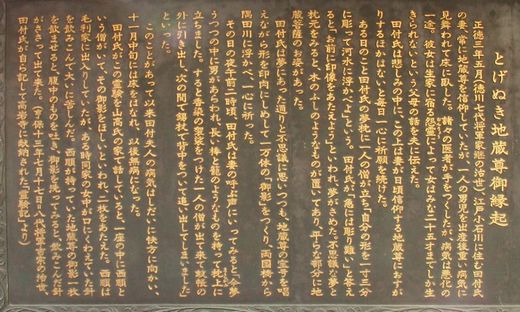 とげぬき地蔵尊御縁起
正徳三年五月（徳川七代将軍家継の治世）江戸小石川に住む田付氏
の妻、常に地蔵尊を信仰していたが、一人の男子を出産後重い病気に
見舞われて床に臥した。諸々の医者が手をつくしたが、病気は悪化の
一途。彼女は生家に宿る怨霊によって女はみな二十五才までしか生
きられないという父母の話を夫に伝えた。
田付氏は悲しみの中に、この上は妻が日頃信仰する地蔵尊におすが
りするほかはないと毎日一心に祈願を続けた。
ある日のこと田付氏の夢に一人の僧が立ち、自分の形を一寸三分
に彫って河水に浮かべよという。田付氏が、急には彫り難いと答える
と「お前に印像をあたえよう」といわれ、夢がさめた。不思議な夢と
枕元をみると、木のふしのようなものが置いてあり、平らな部分に地
蔵菩薩のお姿があった。
田付氏は夢にあった通りと不思議に思いつつも、地蔵尊の宝号を唱
えながら形を印肉にしめして一万体の「御影」をつくり、両国橋から
隅田川に浮かべ、一心に祈った。
その日の夜午前二時頃、田付氏は妻の呼ぶ声にいってみると、「今夢
うつつの中に男があらわれ、長い棒と籠のようなものを持って枕上に
立ちました。すると香染の袈裟をつけた一人の僧が出て来て、蚊帳の
外に引き出し、次の間で錫杖で背中をついて追い出してしまいました」
といった。
このことがあって以来田付夫人の病気はしだいに快方に向かい、
十一月中旬には床をはなれ、以来無病になった。
田付氏がこの霊験を山高氏の家で話していると、一座の中に西順と
いう僧がいて、その御影をほしいといわれ、二枚をあたえた。西順は
毛利家に出入りしていたが、ある時同家の女中が口にくわえていた針
を飲みこんで大いに苦しんだ。西順が持っていた地蔵尊の御影一枚
を飲ませると、腹中のものをはき、御影を洗ってみると、飲みこんだ針
がささって出て来た。
田付氏が自ら記して高岩寺に献納された「霊験記」より）